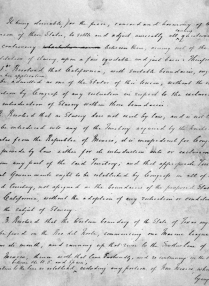 It being desirable for the peace, concord and harmony of the
Union of these States, to settle and adjust amicably all questions
controversy between them, arising out of the
institution of slavery, upon a fair equitable and just basis: Therefore
Resolved that California, with suitable boundaries, ought
be admitted as one of the States of this Union, without the
by Congress of any restriction in respect to the exclusion
introduction of Slavery within those boundaries.
Resolved that as Slavery does not exist by law, and is not
be introduced into any of the Territory acquired by the United
from the Republic of Mexico, it is inexpedient for Congress
provide by law either for its introduction into or exclusion
any part of the said Territory; and that appropriate Territorial
Governments ought to be established by Congress in all of
said territory, not assigned as the boundaries of the proposed State
California, without the adoption of any restriction or condition
the subject of Slavery.
Resolved that the Western boundary of the State of Texas ought
be fixed on the Rio del Norte, commencing one marine league
its mouth, and running up that river to the Southern line of
Mexico; thence with that line Eastwardly, and so continuing in the